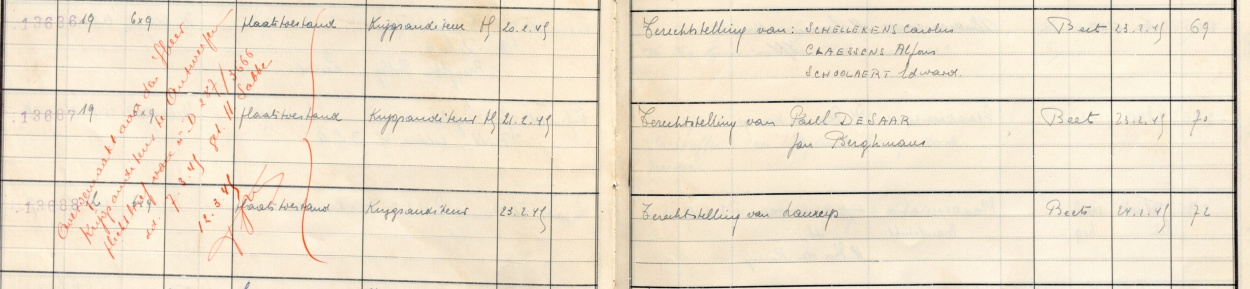 13686 19 6x9 plaatstoestand Krijgsauditeur 20.2.45 Terechtstelling van: SCHELLEKENS Carolus Beet 23.2.45 69
CLAESSENS Alfons
SCHOOLAERT Edward.
13687 19 6x9 plaatstoestand Krijgsauditeur 21.2.45 Terechtstelling van Paul DESAAR Beet 23.2.45 70
Jan Berghmans
13688 6x9 plaatstoestand Krijgsauditeur 23.2.45 Terechtstelling van Laureys Beets 24.2.45 72
Overgemaakt aan den Heer
Krijgsauditeur te Antwerpen
D. 237/3666
dd. 7.3.45 get. Sabbe
12.3.45